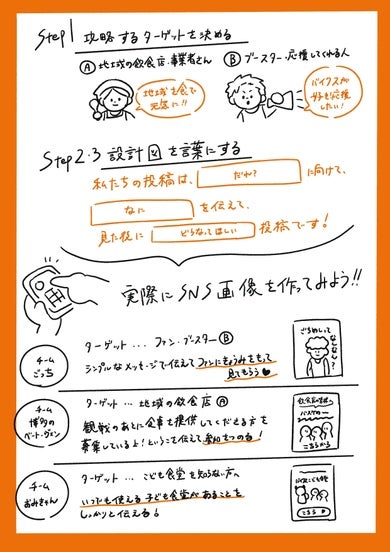 Step1 攻略するターゲットを決める
Ⓐ 地域の飲食店・事業者さん Ⓑ ブースター・応援してくれる人
地域を食で
元気に!!
バイクスが
好き応援
したい!
Step2・3 設計図を言葉にする
私たちの投稿は、 だれ? に向けて、
なに を伝えて、
見た後に どうなってほしい 投稿です!
実際にSNS画像を作ってみよう!!
チーム
ごっち
ターゲット… ファン・ブースターⒷ
シンプルなメッセージで伝えてファンにきょうみをもって
見てもらう
ごちめしって
なにに?
チーム
博多の
ベートーヴェン
ターゲット… 地域の飲食店Ⓐ
観戦のあとに食事を提供してくださる方を
募集しているよ!ということを伝えて
こちらから
チーム
おみきゃん
ターゲット… こども食堂を知らない方へ
いつでも使える子ども食堂があることを
しっかりと伝える!
こちら